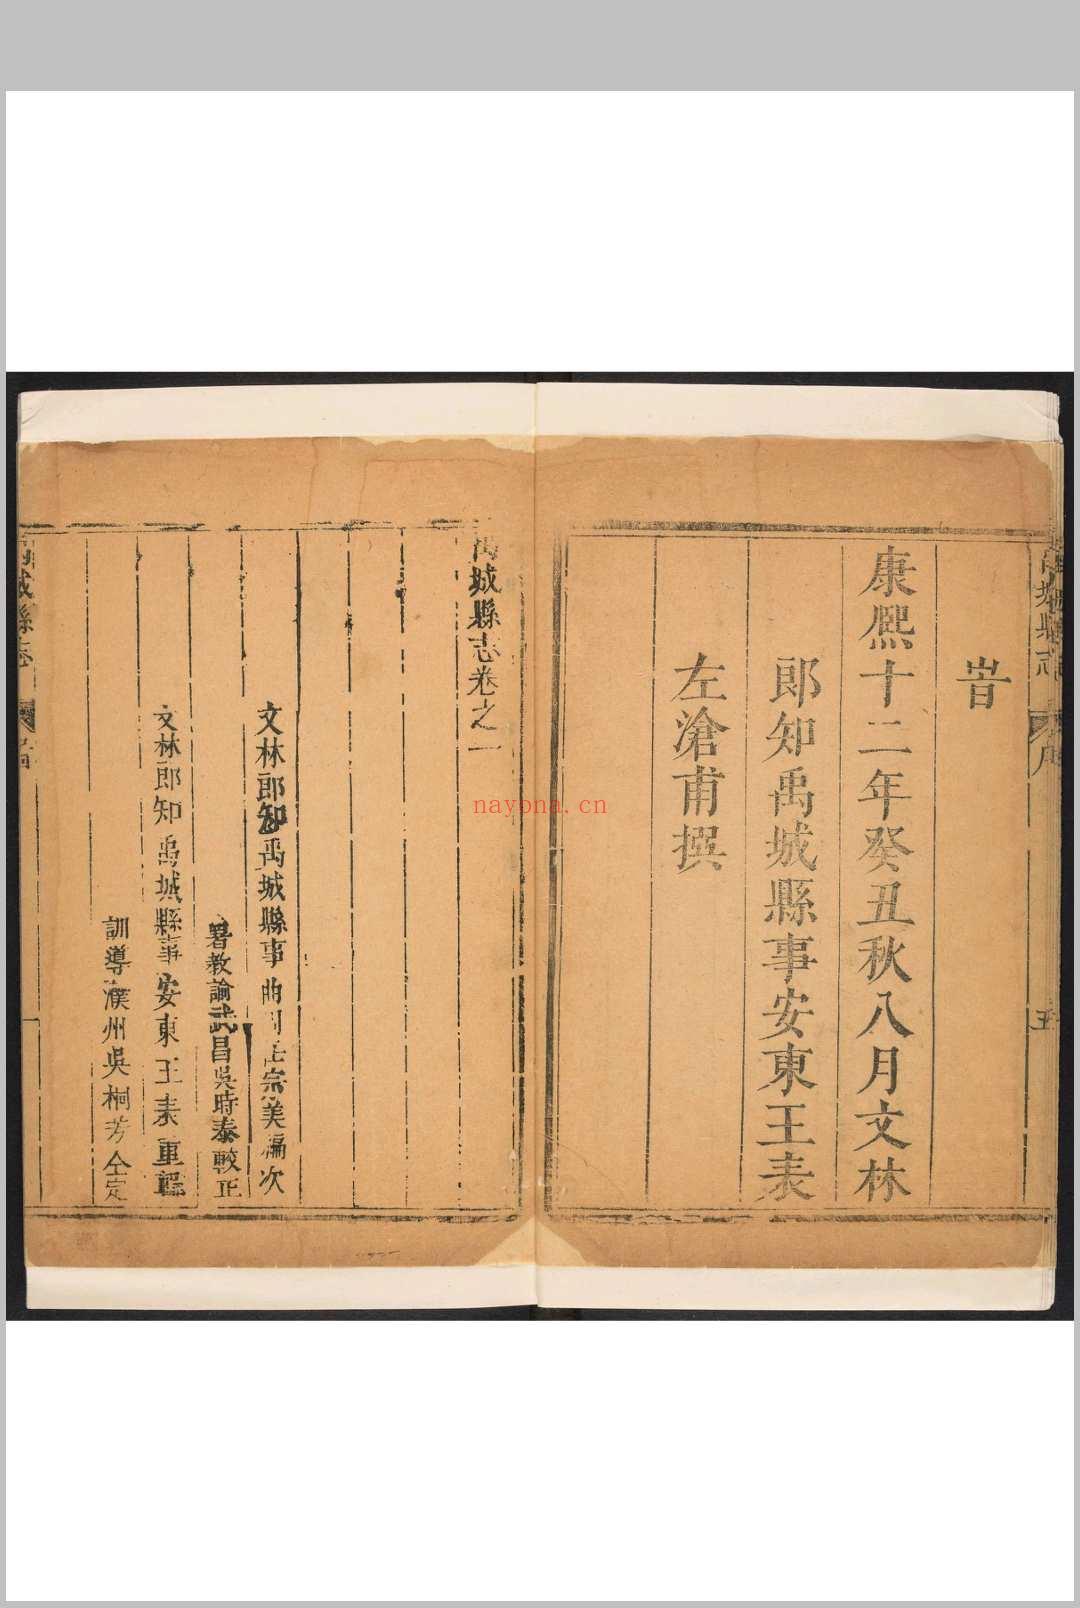 旹
康熙十二年癸丑秋八月文林
郎知禹城縣事安東王表
左滄甫撰
禹城縣志卷之一
文林郎知禹城縣事曲周宗美編次
署教諭武昌吳時泰較正
文林郎知禹城縣事安東王表重
訓導濮州吳桐芳仝定
城縣志
nayona.cn